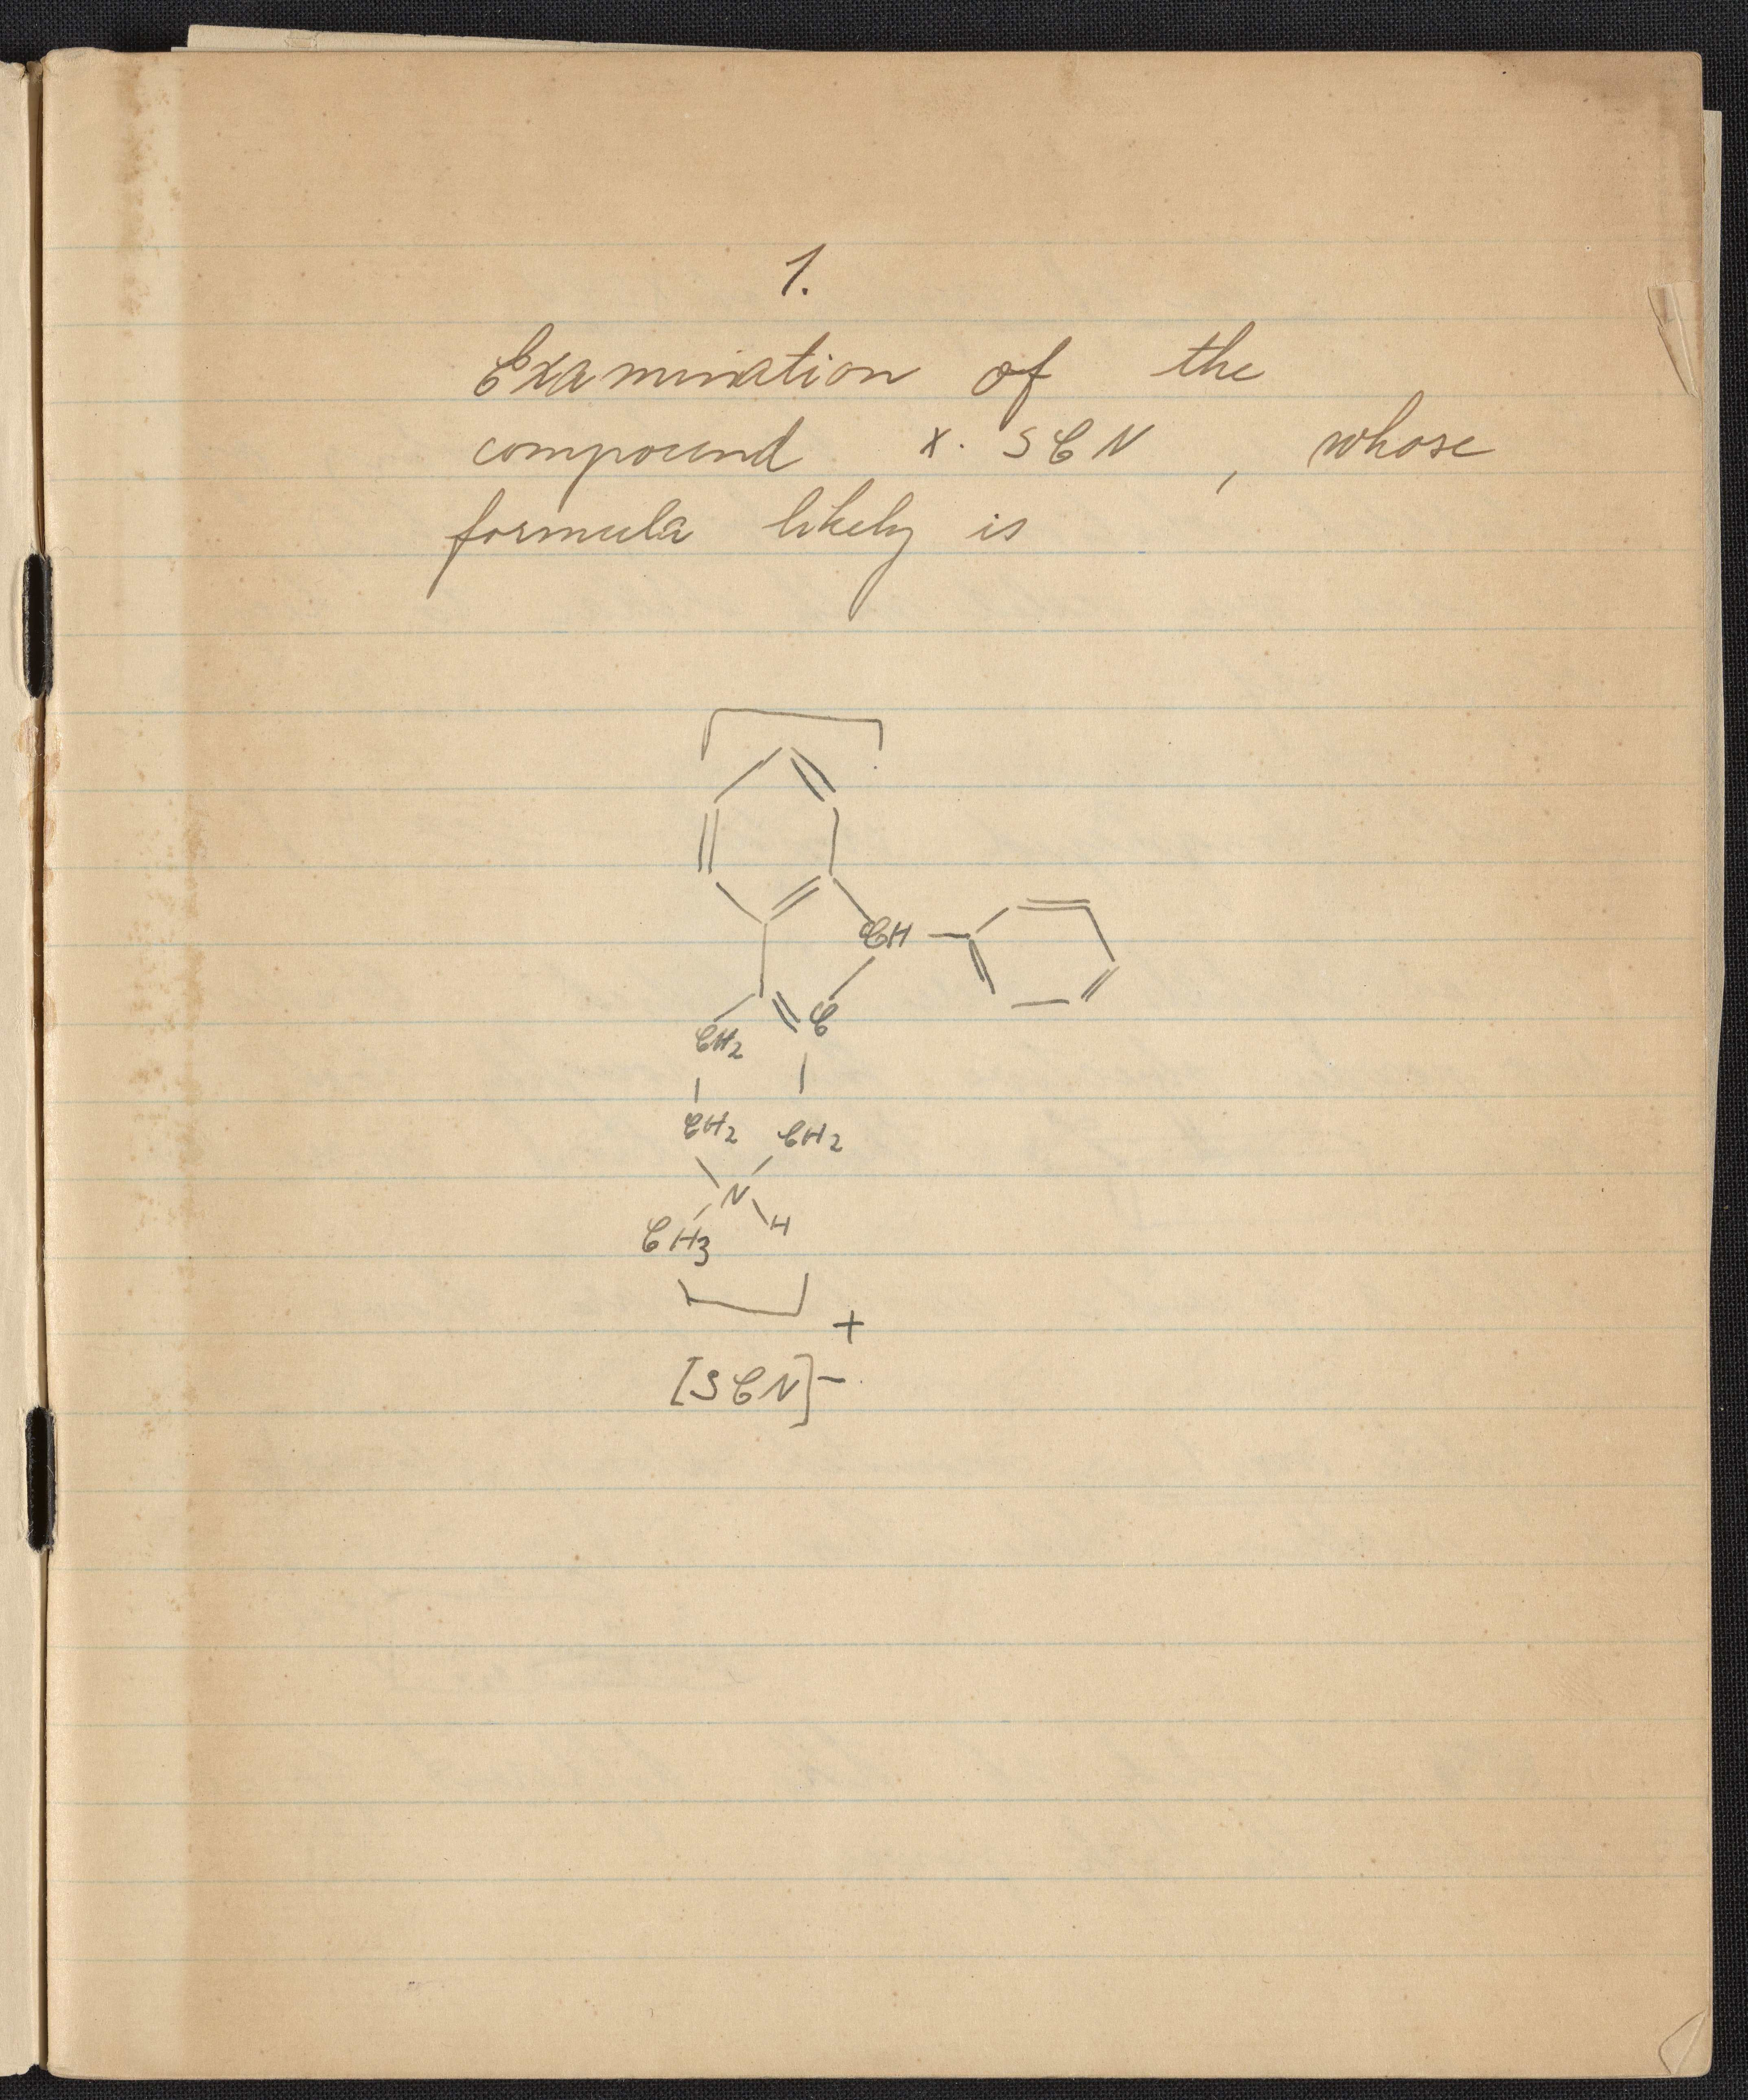 1.
Examination of the
compound x. SCN, whose
formula likely is
CH
C
CH2
CH2 CH2
N
CH3 H
+
[SCN]-